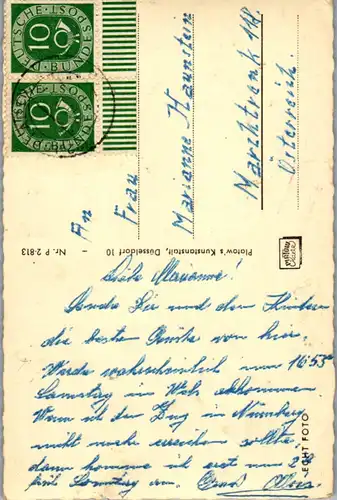 DEUTSCHE BUNDESPOST
10
DEUTSCHE BUNDESPOST
10
An
Frau
Marianne Haunstein
Marchtrenk 118
Österreich.
Plotow's Kunstanstalt, Düsseldorf 10 - Nr. P 2-813
Liebe Marianne!
Sende Dir und den Kindern
die besten Grüße von hier.
Werde wahrscheinlich um 16:53
Samstag in Wels ankommen
Wenn ich den Zug in Nürnberg
nicht mehr erreichen sollte
dann komme ich erst um 2
früh Sonntag an. Gruß Alois
ECHT FOTO